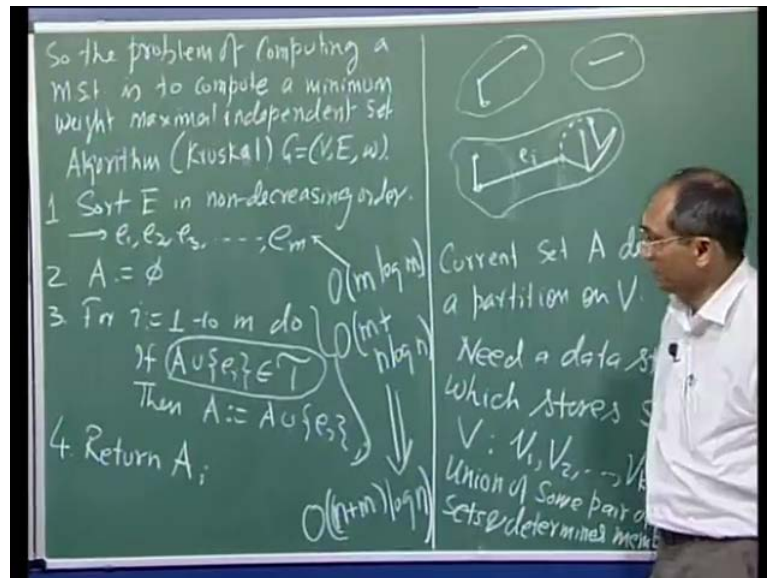 So the problem of computing a
mst is to compute a minimum
weight maximal independent set
Algorithm (Kruskal) G=(V,E,w).
1 Sort E in non-decreasing order.
→ e₁, e₂, e₃, ----, eₘ
O(m log m)
2 A := ϕ
3. For i:=1 to m do
If A∪{eᵢ}∈T
Then A:= A∪{eᵢ},
O(m+
n log n)
4. Return A;
O((n+m)log n)
eᵢ
Current set A
a partition on V.
Need a data
which stores
V: V₁, V₂, --,
Union of some pair
sets & determines